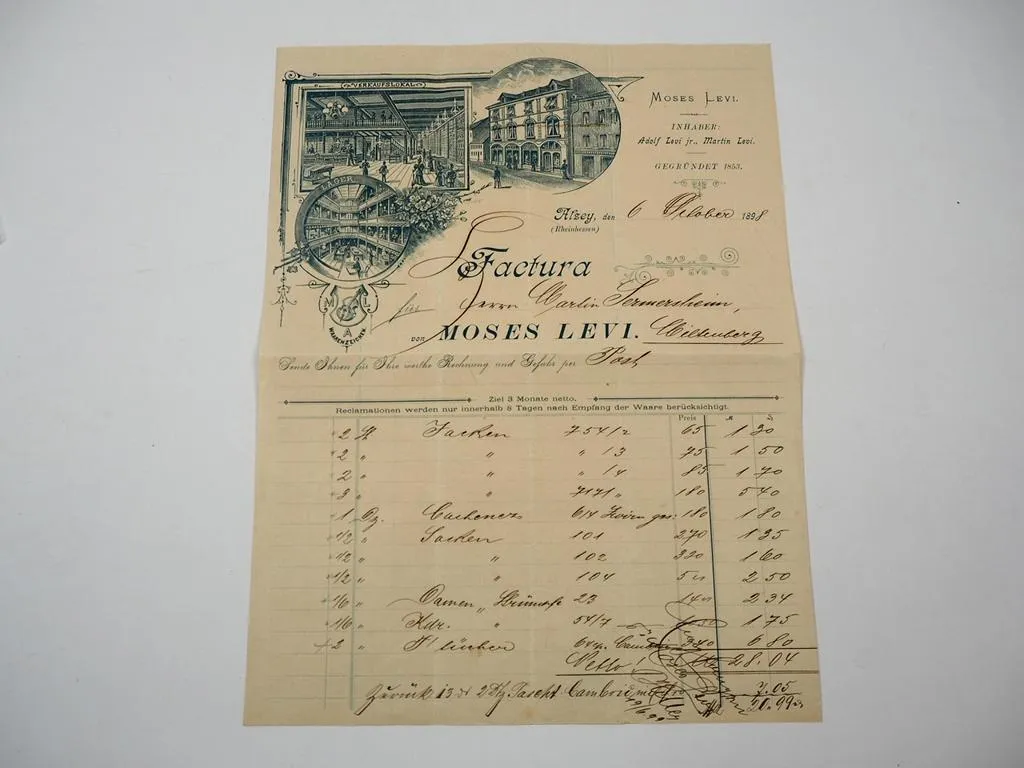 VERKAUFSLOKAL
LAGER
M L
A
WARENZEICHEN
MOSES LEVI.
INHABER:
Adolf Levi jr., Martin Levi.
GEGRÜNDET 1853.
Alzey, den 6 October 1898
(Rheinhessen)
Factura
für Herrn Martin Germersheim,
von MOSES LEVI. Miltenberg
Sende Ihnen für Ihre werthe Rechnung und Gefahr per Post
Ziel 3 Monate netto.
Reclamationen werden nur innerhalb 8 Tagen nach Empfang der Waare berücksichtigt.
Preis M ₰
2 St Jacken 754/2 65 1 30
2 " " " /3 75 1 50
2 " " " /4 85 1 70
3 " " 7171 " 180 5 40
1 Dz. Cachenez 614 180 1 80
1/2 " Jacken 101 270 1 35
1/2 " " 102 320 1 60
1/2 " " 104 5 2 50
1/6 " Damen " Strümpfe 23 14 2 34
1/6 " Kdr. " 54/7 1 75
2 " 340 6 80
Netto 28.04
Zurück 13 2 Dtz 7.05
20.99